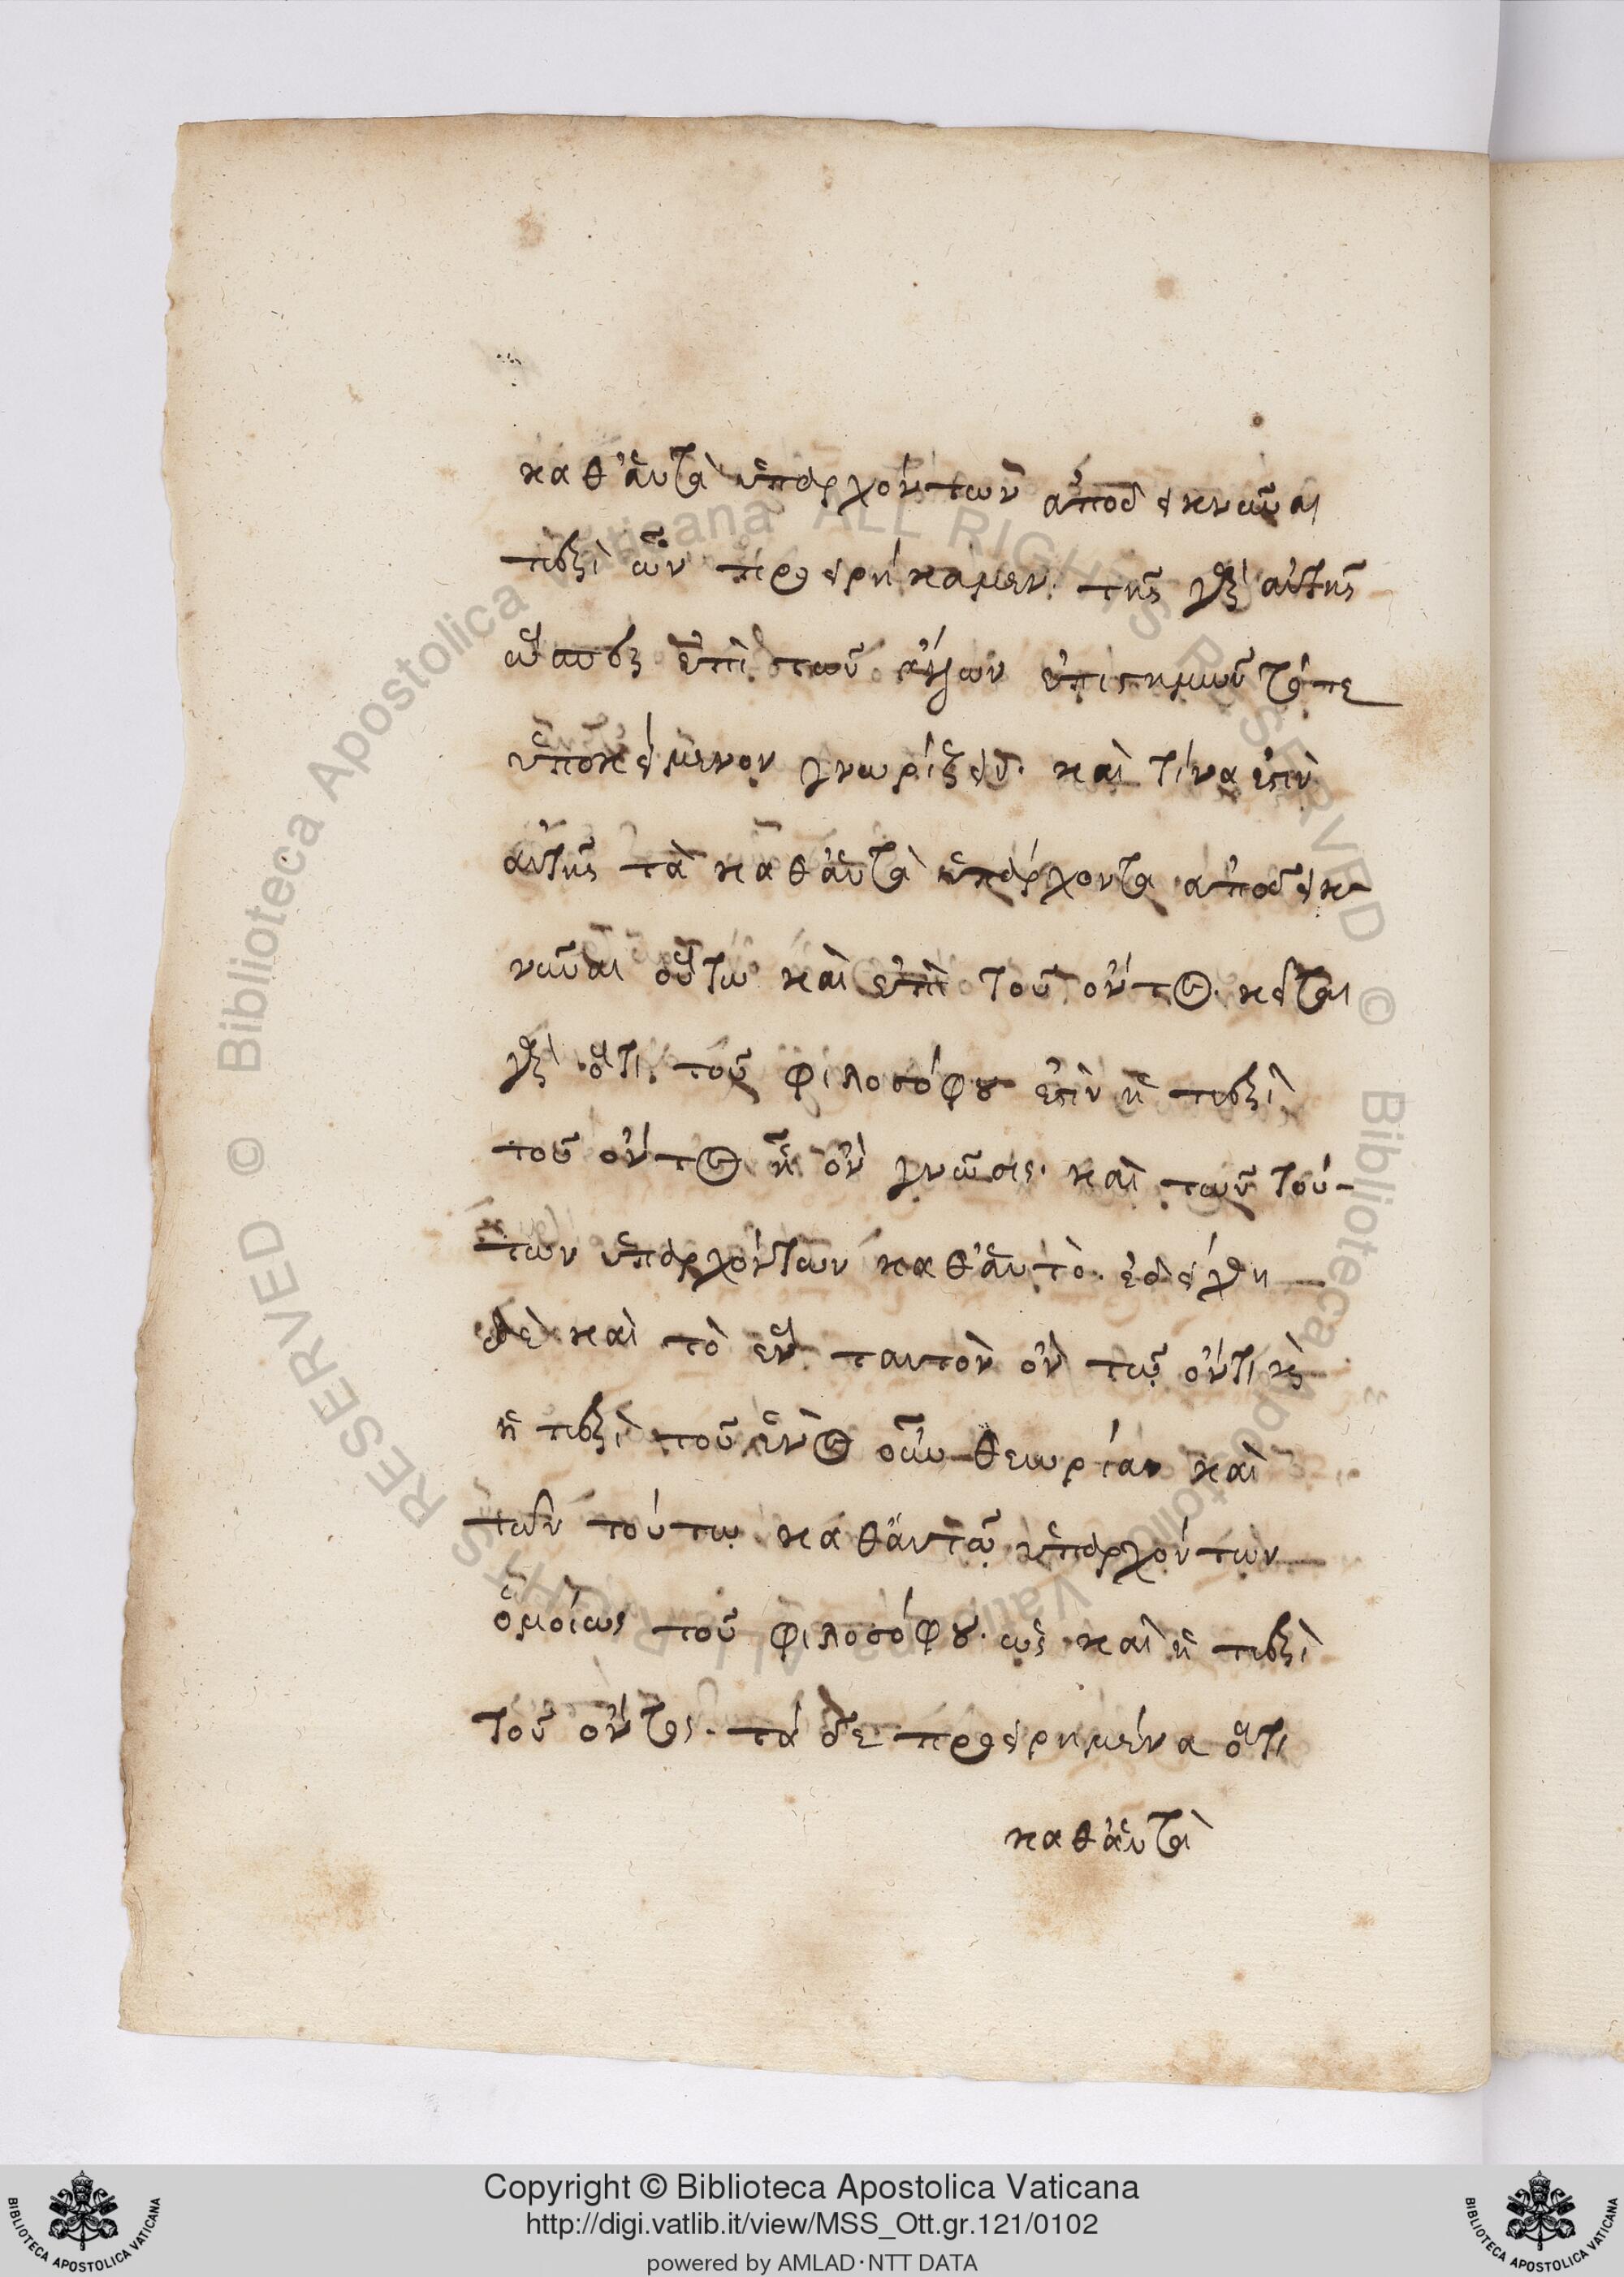 καθ' αὑτὰ ὑπαρχόντων ἀποδεικνύναι
περὶ ὧν προειρήκαμεν. τῆς γὰρ αὐτῆς
ὥσπερ ἐπὶ τῶν ἄλλων ἐπιστημῶν τό τε
ὑποκείμενον γνωρίζειν. καὶ τίνα ἐστὶν
αὐτῆς τὰ καθ' αὑτὰ ὑπάρχοντα ἀποδεικ-
νύναι οὕτω καὶ ἐπὶ τοῦ ὄντος. κεῖται
γὰρ ὅτι τοῦ φιλοσόφου ἐστὶν ἡ περὶ
τοῦ ὄντος ᾗ ὂν γνῶσις. καὶ τῶν τού-
των ὑπαρχόντων καθ' αὑτό. ἐδείχθη
δὲ καὶ τὸ ἓν ταυτὸν ὂν τῷ ὄντι καὶ
ἡ περὶ τοῦ ἑνὸς οὖν θεωρία καὶ
τῶν τούτῳ καθ' αὑτῷ ὑπαρχόντων
ὁμοίως τοῦ φιλοσόφου. ὡς καὶ ἡ περὶ
τοῦ ὄντος. τὰ δὲ προειρημένα ὅτι
καθ' αὑτὰ
Copyright © Biblioteca Apostolica Vaticana
http://digi.vatlib.it/view/MSS_Ott.gr.121/0102
powered by AMLAD·NTT DATA
BIBLIOTECA APOSTOLICA VATICANA
BIBLIOTECA APOSTOLICA VATICANA
© Biblioteca Apostolica Vaticana ALL RIGHTS RESERVED © Biblioteca Apostolica Vaticana ALL RIGHTS RESERVED